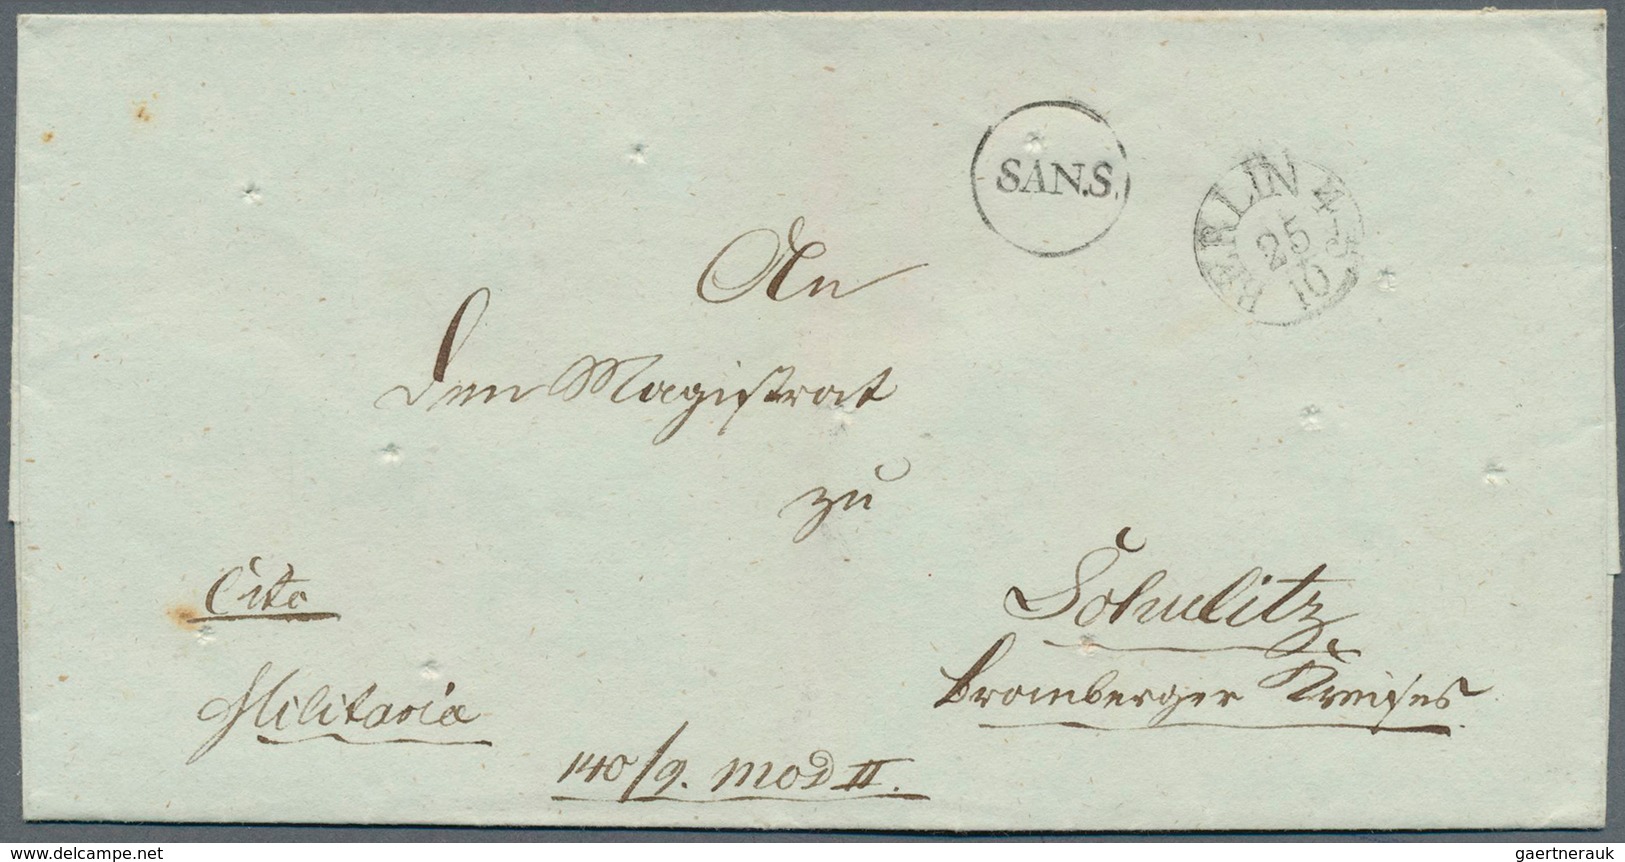 SAN.S.
BERLIN 4-5
25
10
An
den Magistrat
zu
Cito
Schulitz
Militaria
Bromberger Kreises
140/9. mod II.
© www.delcampe.net
gaertnerauk